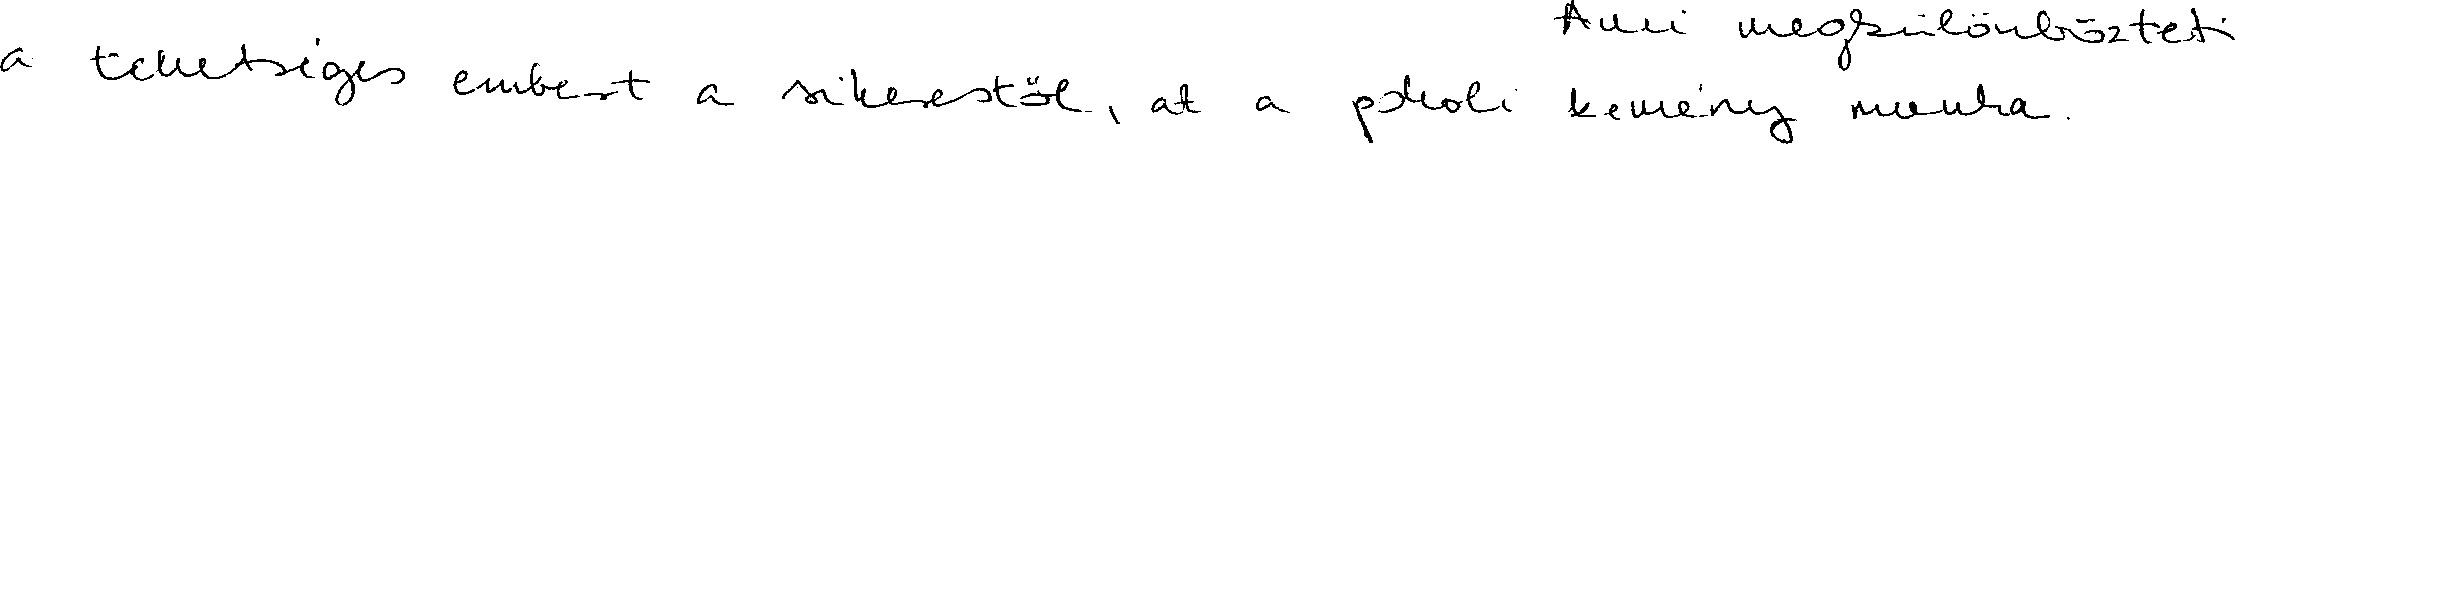 Ami megkülönbözteti
a tehetséges embert a sikerestől, az a pokoli kemény munka.